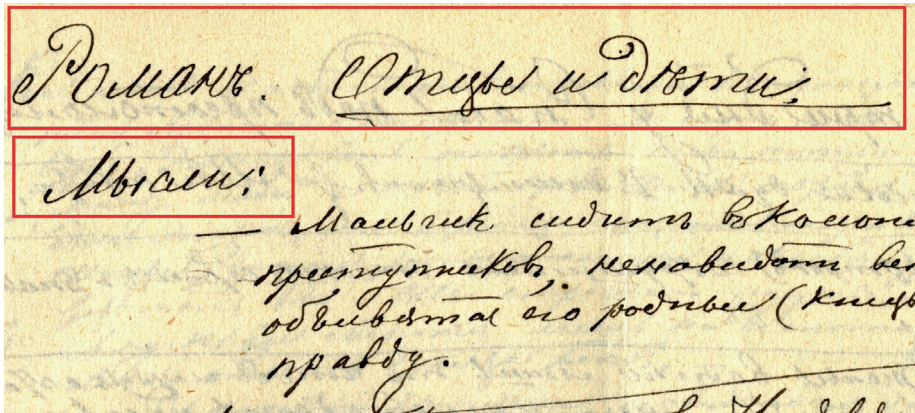 Романъ. Отцы и дѣти.
Мысли:
— Мальчик сидитъ въ колоні
преступниковъ, ненавидитъ все
объявятся его родные (князь
правду.